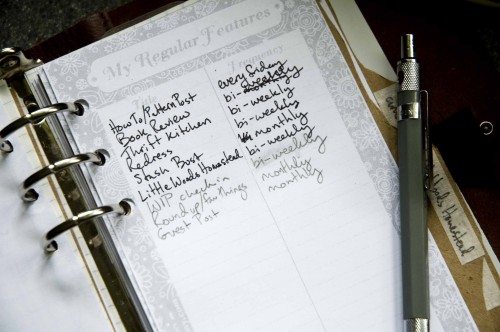 My Regular Features
Frequency
How To/Pattern Post every Friday
Book Review bi-weekly
Thrift Kitchen bi-weekly
Redress bi-weekly
Stash Bust monthly
Little Woods Homestead bi-weekly
WIP check in bi-weekly
Roundup/Fav Things monthly
Guest Post monthly
Homestead